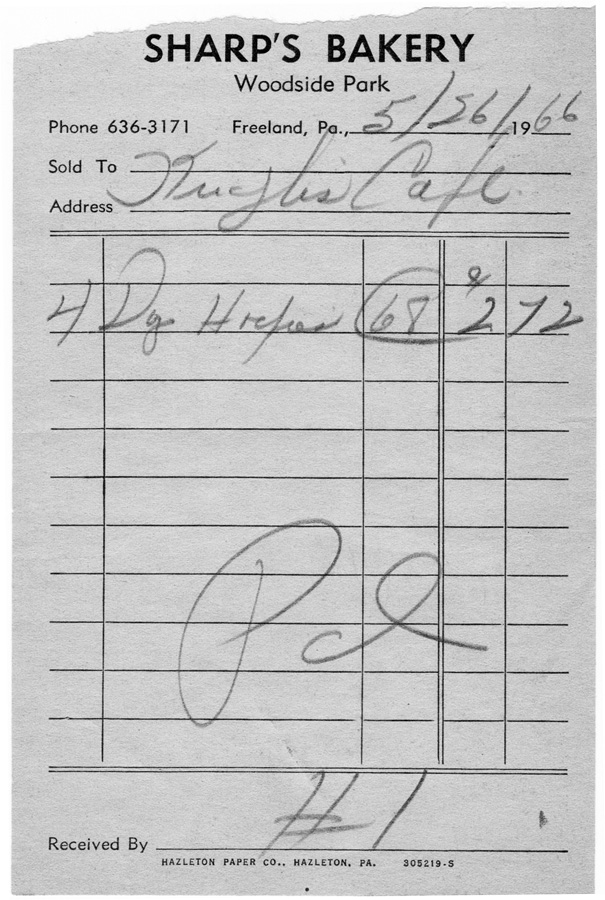 SHARP'S BAKERY
Woodside Park
Phone 636-3171 Freeland, Pa., 5/26/ 1966
Sold To
Address Café
4 Dz 68 2 72
Pd
Received By #1
HAZLETON PAPER CO., HAZLETON, PA. 305219-S